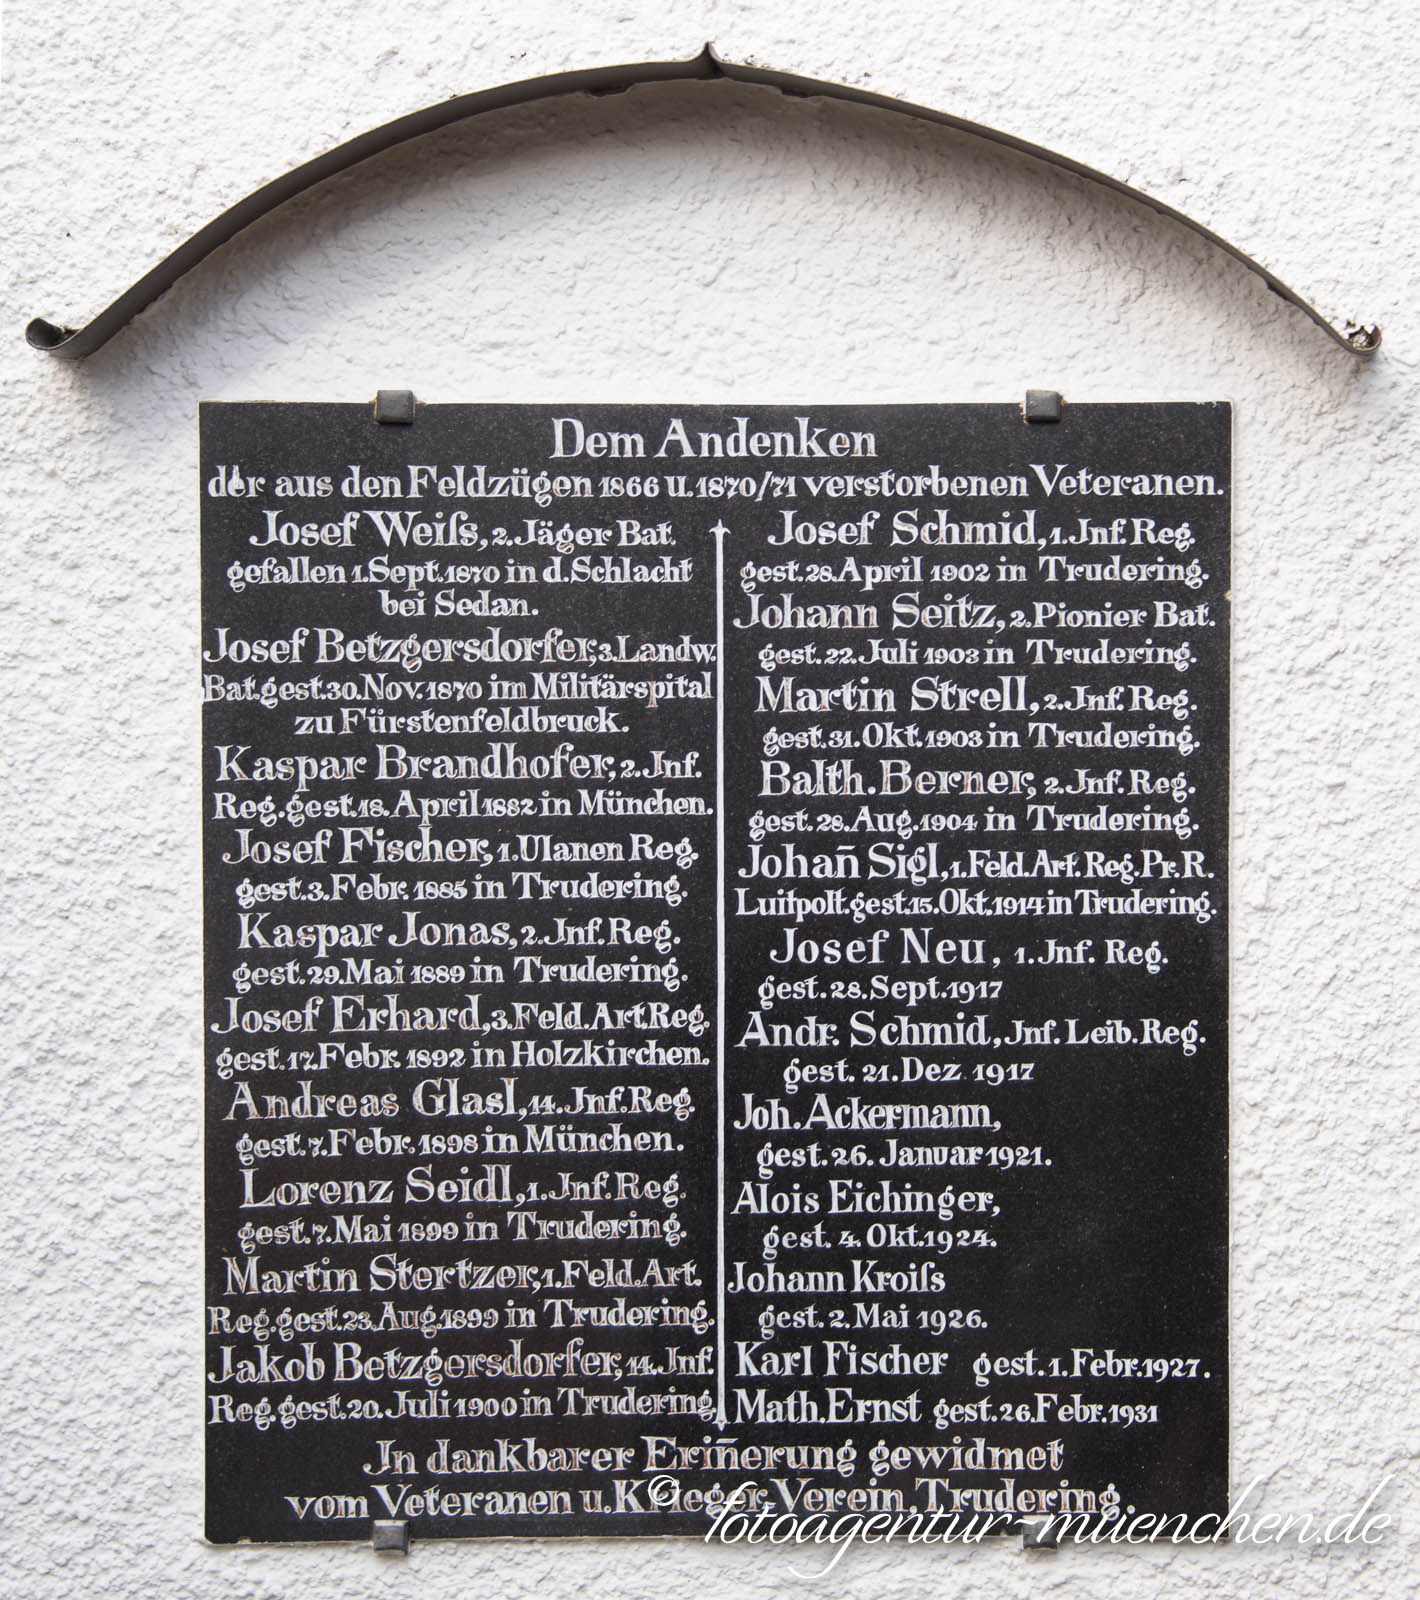 Dem Andenken
der aus den Feldzügen 1866 u. 1870/71 verstorbenen Veteranen.
Josef Weiſs, 2. Jäger Bat.
gefallen 1. Sept. 1870 in d. Schlacht
bei Sedan.
Josef Betzgersdorfer, 3. Landw.
Bat. gest. 30. Nov. 1870 im Militärspital
zu Fürstenfeldbruck.
Kaspar Brandhofer, 2. Jnf.
Reg. gest. 18. April 1882 in München.
Josef Fischer, 1. Ulanen Reg.
gest. 3. Febr. 1885 in Trudering.
Kaspar Jonas, 2. Jnf. Reg.
gest. 29. Mai 1889 in Trudering.
Josef Erhard, 3. Feld. Art. Reg.
gest. 17. Febr. 1892 in Holzkirchen.
Andreas Glasl, 14. Jnf. Reg.
gest. 7. Febr. 1898 in München.
Lorenz Seidl, 1. Jnf. Reg.
gest. 7. Mai 1899 in Trudering.
Martin Stertzer, 1. Feld. Art.
Reg. gest. 23. Aug. 1899 in Trudering.
Jakob Betzgersdorfer, 14. Jnf.
Reg. gest. 20. Juli 1900 in Trudering.
Josef Schmid, 1. Jnf. Reg.
gest. 28. April 1902 in Trudering.
Johann Seitz, 2. Pionier Bat.
gest. 22. Juli 1903 in Trudering.
Martin Strell, 2. Jnf. Reg.
gest. 31. Okt. 1903 in Trudering.
Balth. Berner, 2. Jnf. Reg.
gest. 28. Aug. 1904 in Trudering.
Johañ Sigl, 1. Feld. Art. Reg. Pr. R.
Luitpolt. gest. 15. Okt. 1914 in Trudering.
Josef Neu, 1. Jnf. Reg.
gest. 28. Sept. 1917
Andr. Schmid, Jnf. Leib. Reg.
gest. 21. Dez. 1917
Joh. Ackermann,
gest. 26. Januar 1921.
Alois Eichinger,
gest. 4. Okt. 1924.
Johann Kroiſs
gest. 2. Mai 1926.
Karl Fischer gest. 1. Febr. 1927.
Math. Ernst gest. 26. Febr. 1931
Jn dankbarer Eriñerung gewidmet
vom Veteranen u. Krieger Verein, Trudering.
© fotoagentur-muenchen.de